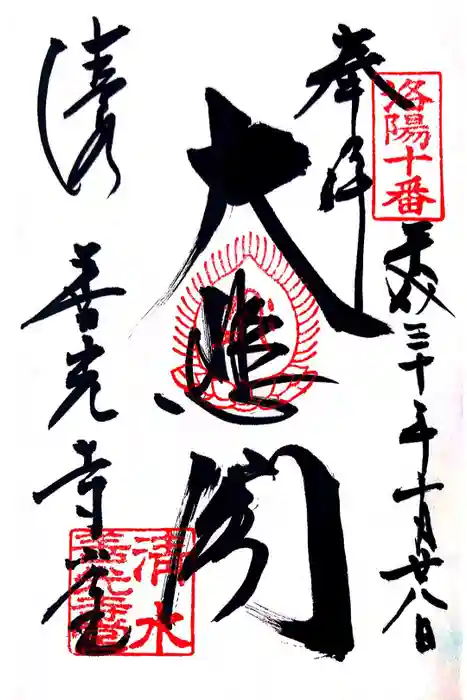 洛陽十番
平成三十年十月廿八日
奉拝
大悲閣
清水 善光寺堂
清水
善光寺堂